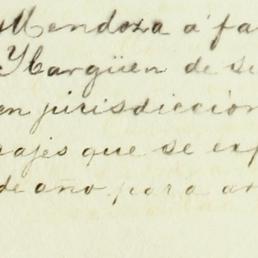 Mendoza á fa
Ybargüen de su
en jurisdiccion
rajes que se exp
de año para ar